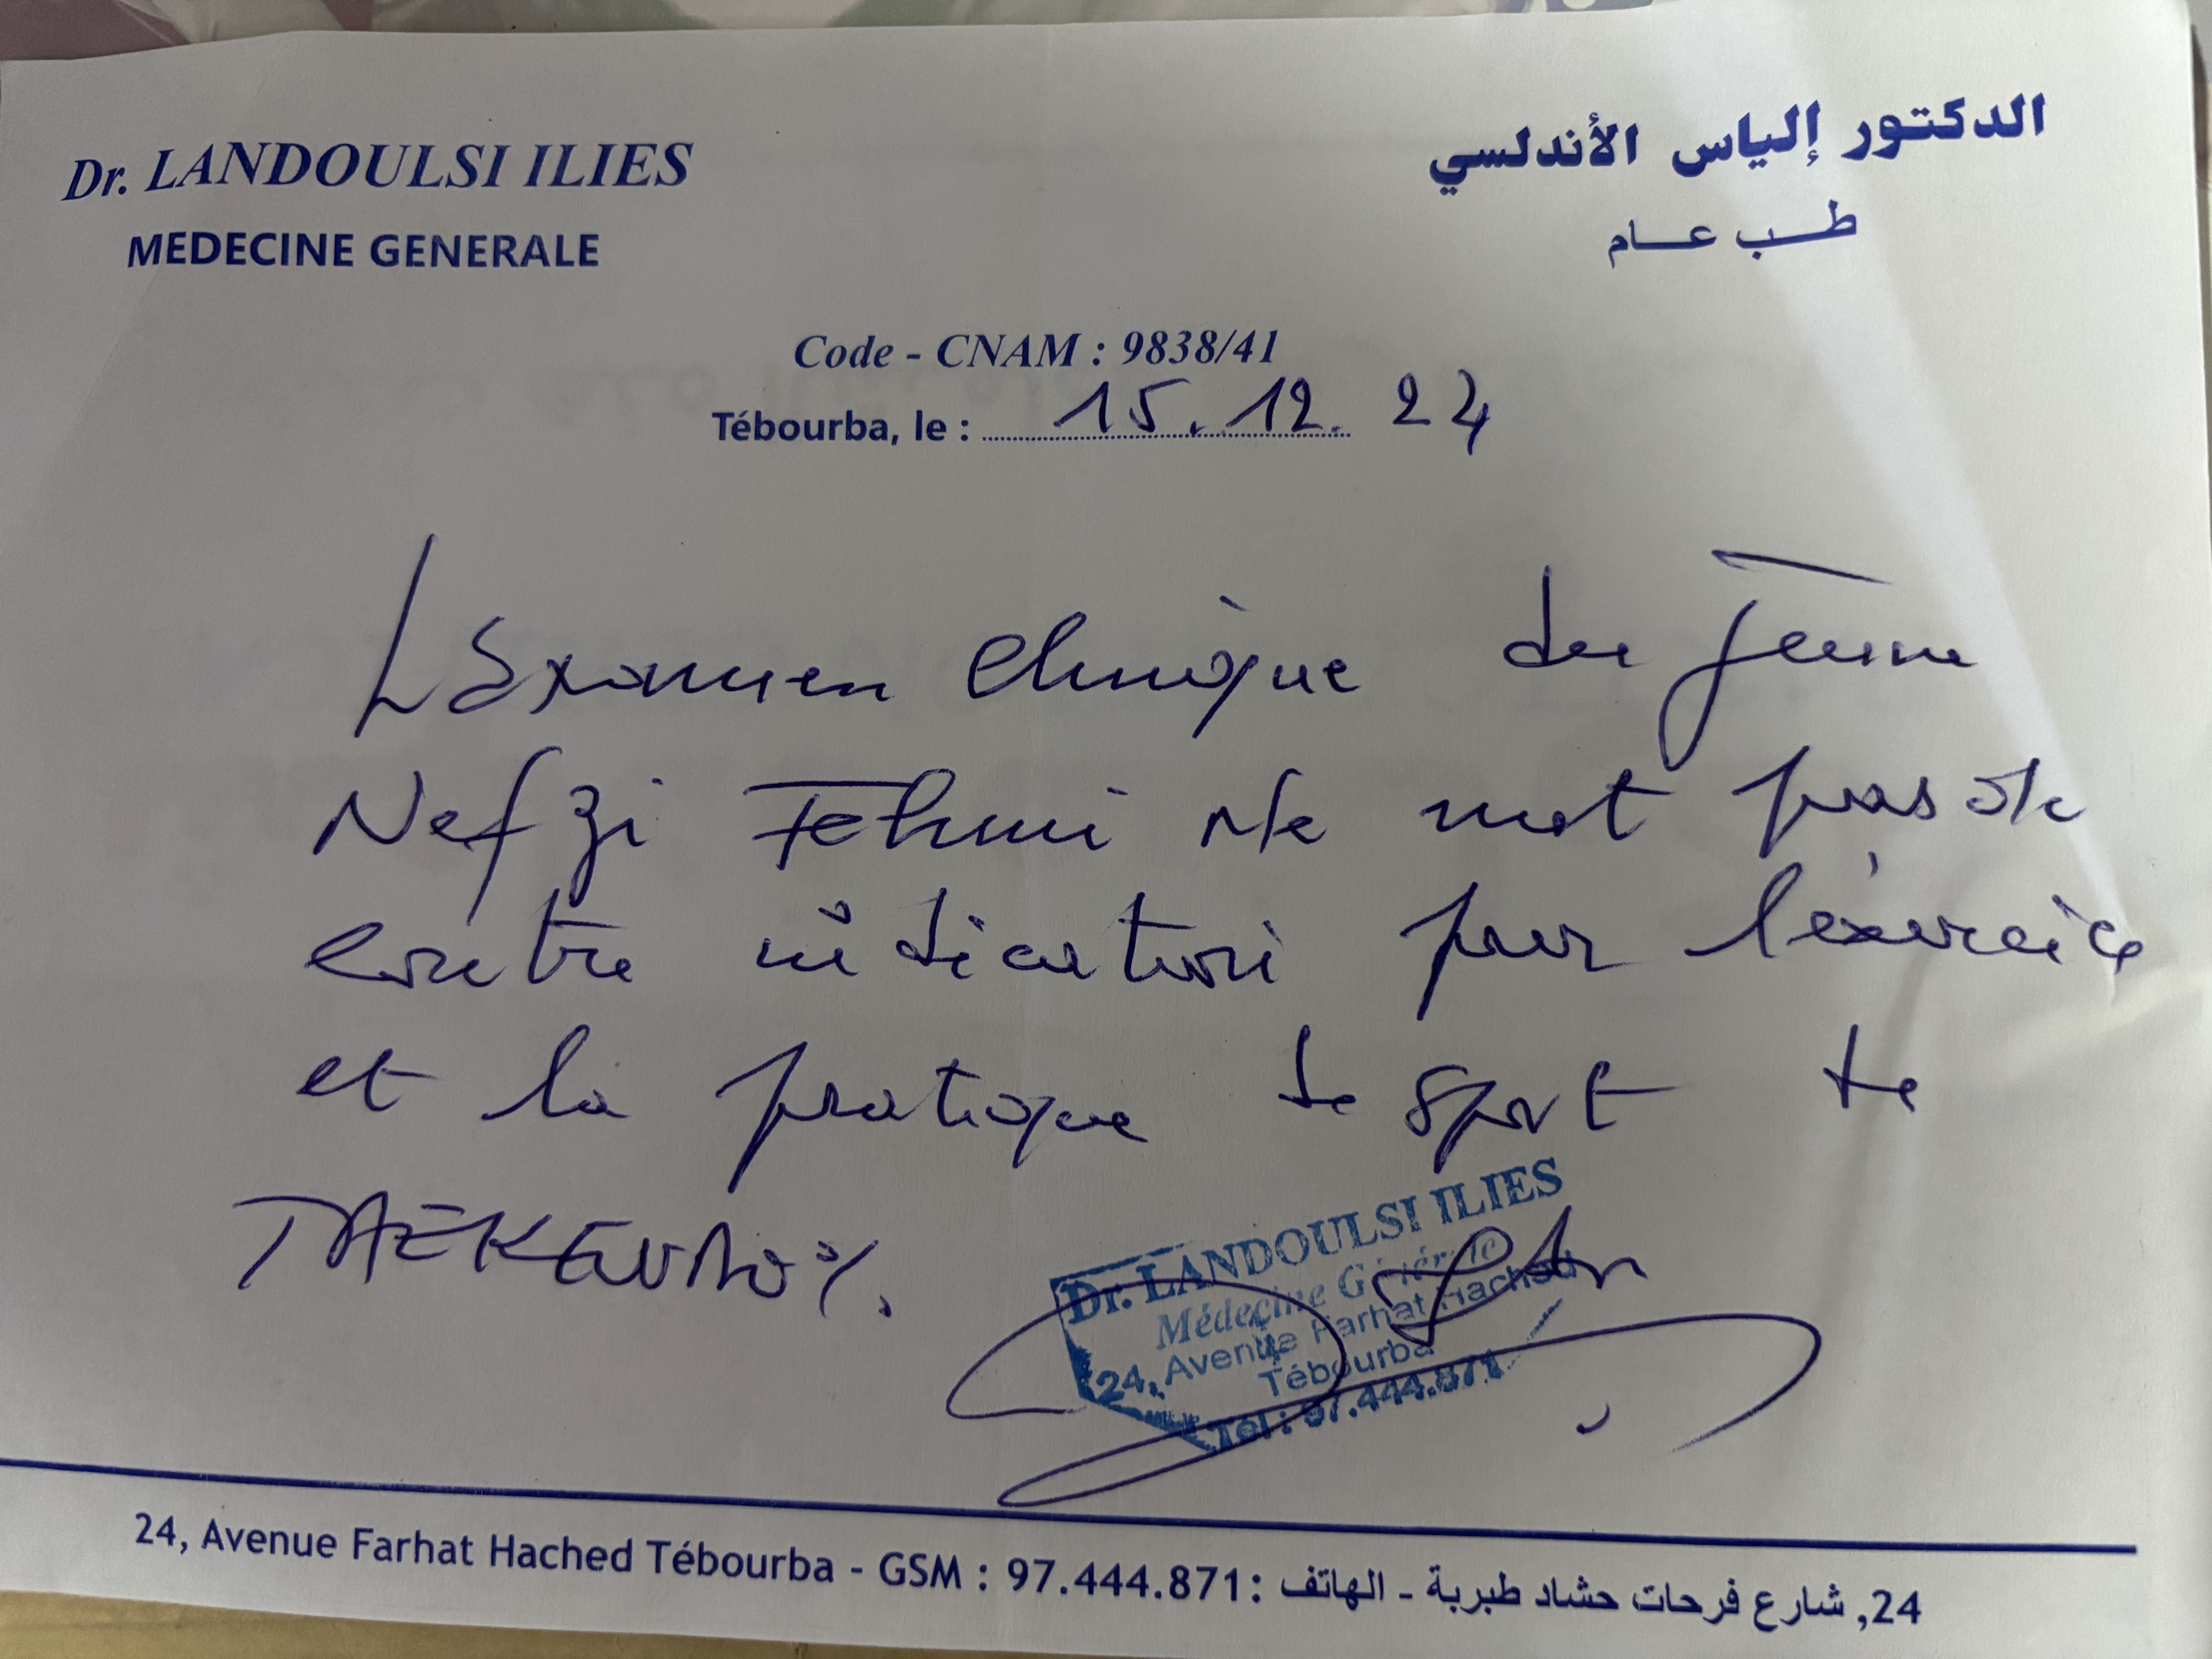 Dr. LANDOULSI ILIES
MEDECINE GENERALE
الدكتور إلياس الأندلسي
طب عام
Code - CNAM : 9838/41
Tébourba, le : 15.12.24
L'Examen clinique du jeune
Nefzi Fehmi Ne met pas de
contre indication pour l'exercice
et la pratique de sport de
TAEKEUNDO
Dr. LANDOULSI ILIES
Médecine Générale
24, Avenue Farhat Hached
Tébourba
Tél : 97.444.871
24, Avenue Farhat Hached Tébourba - GSM : 97.444.871: 24, شارع فرحات حشاد طبربة - الهاتف